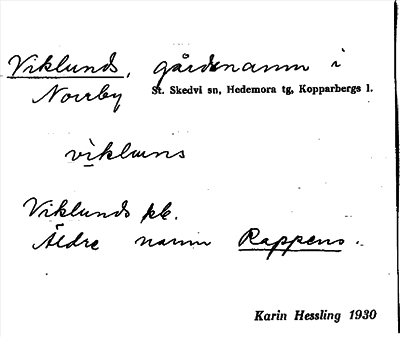 Viklunds, gårdsnamn i
Norrby St. Skedvi sn, Hedemora tg, Kopparbergs l.
vikluns
Viklunds pl.
Äldre namn Rappens.
Karin Hessling 1930